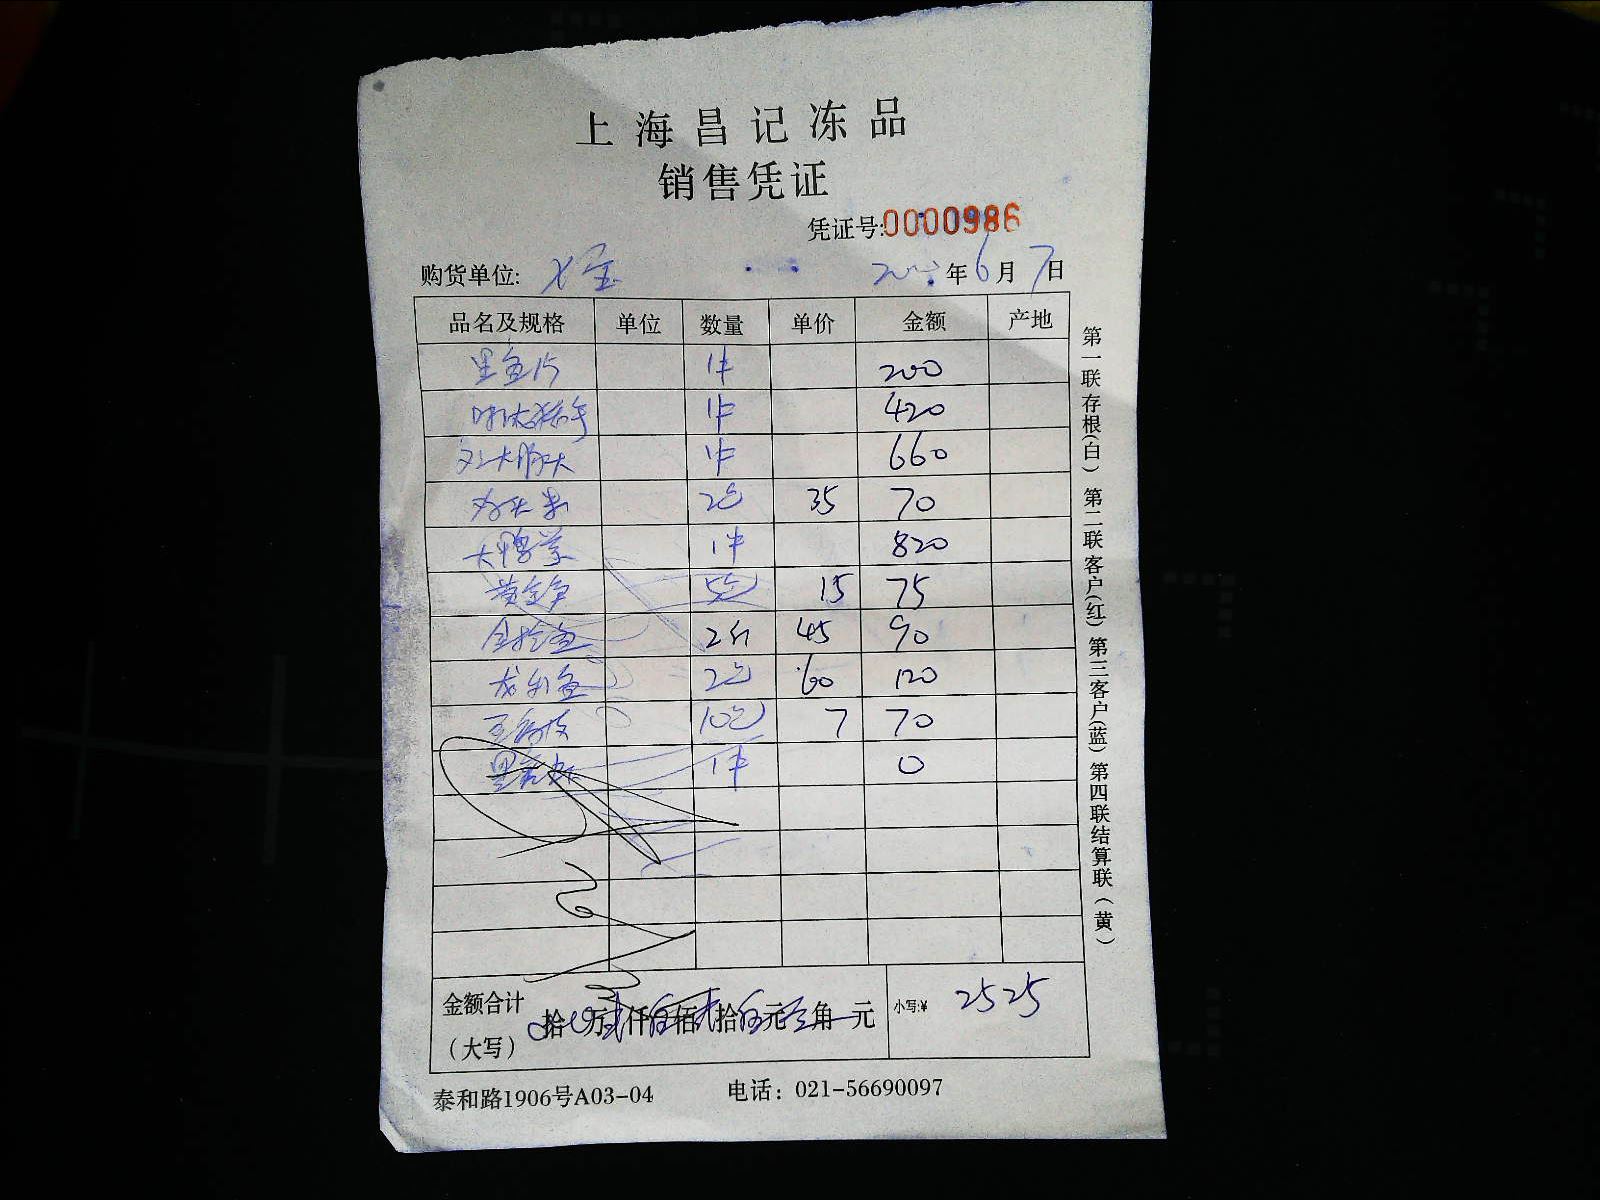 上海昌记冻品
销售凭证
凭证号:0000986
购货单位: 年6月7日
品名及规格 单位 数量 单价 金额 产地
黑鱼片 1件 200
1件 420
1件 660
2包 35 70
大鸭掌 1件 820
5包 15 75
2 45 90
龙利鱼 2包 60 120
10包 7 70
1件 0
金额合计
(大写) 拾 万贰仟伍佰贰拾伍元 角 元 小写:¥ 2525
泰和路1906号A03-04 电话: 021-56690097
第一联存根(白) 第二联客户(红) 第三客户(蓝) 第四联结算联(黄)